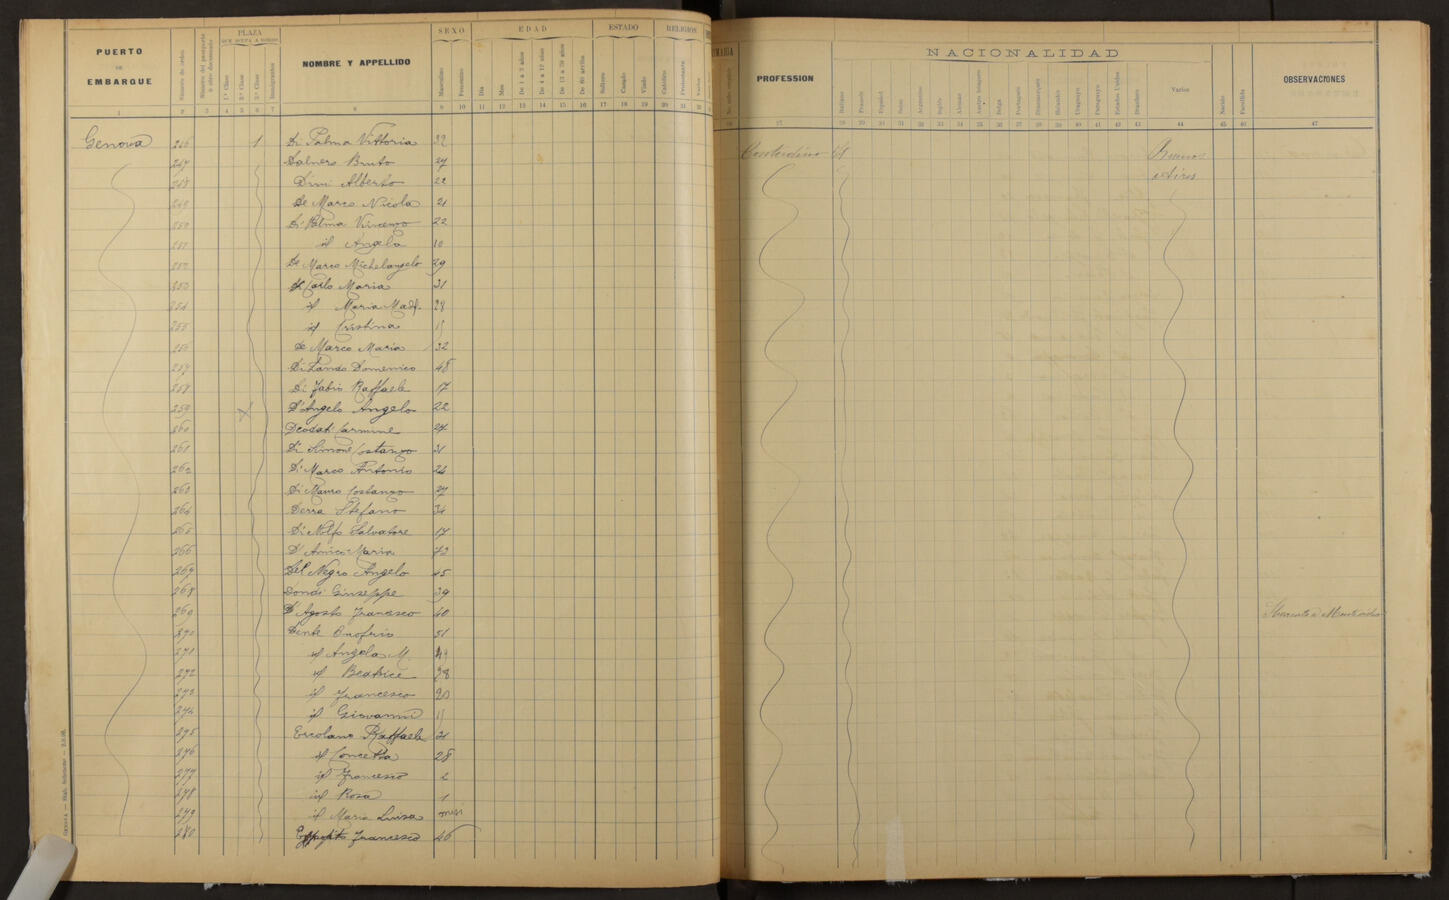 PUERTO DE EMBARQUE
Número de orden
Número del pasaporte ó otro documento
PLAZA
QUE OCUPA A BORDO
1.ª Clase
2.ª Clase
3.ª Clase
Inmigrantes
NOMBRE Y APPELLIDO
SEXO
Masculino
Femenino
EDAD
Dia
Mes
De 1 a 3 años
De 4 a 12 años
De 13 a 59 años
De 60 arriba
ESTADO
Soltero
Casado
Viudo
RELIGION
Católico
Protestante
Varias
1 2 3 4 5 6 7 8 9 10 11 12 13 14 15 16 17 18 19 20 21 22
Genova 246 1 Di Palma Vittoria 32
247 Salnero Bruto 27
248 Dini Alberto 22
249 De Marco Nicola 21
250 Di Palma Vincenzo 22
251 id Angela 10
252 De Marco Michelangelo 29
253 De Carlo Maria 31
254 id Maria Mad. 28
255 id Cristina 11
256 De Marco Maria 32
257 Di Lando Domenico 48
258 Di Fabio Raffaele 17
259 D'Angelo Angelo 22
260 Deodati Carmine 27
261 Di Simone Costanzo 31
262 Di Marco Antonio 24
263 Di Mauro Costanzo 27
264 Derra Stefano 34
265 Di Nolfo Salvatore 17
266 D'Amico Maria 72
267 Del Negro Angelo 45
268 Dondi Giuseppe 39
269 D'Agosto Francesco 40
270 Dente Onofrio 51
271 id Angela M. 49
272 id Beatrice 28
273 id Francesco 20
274 id Giovanni 11
275 Ercolano Raffaele 21
276 id Concetta 28
277 id Francesco 2
278 id Rosa 1
279 id Maria Luisa mesi
280 Francesco 46
PROFESSION
NACIONALIDAD
Italiano
Francés
Español
Suizo
Argentino
Inglés
Aleman
Austro húngaro
Belga
Portugués
Dinamarqués
Holandés
Uruguayo
Paraguayo
Estados Unidos
Brasilero
Varios
Nacido
Fallecido
OBSERVACIONES
27 28 29 30 31 32 33 34 35 36 37 38 39 40 41 42 43 44 45 46 47
Contadino
Buenos
Aires
a Montevideo